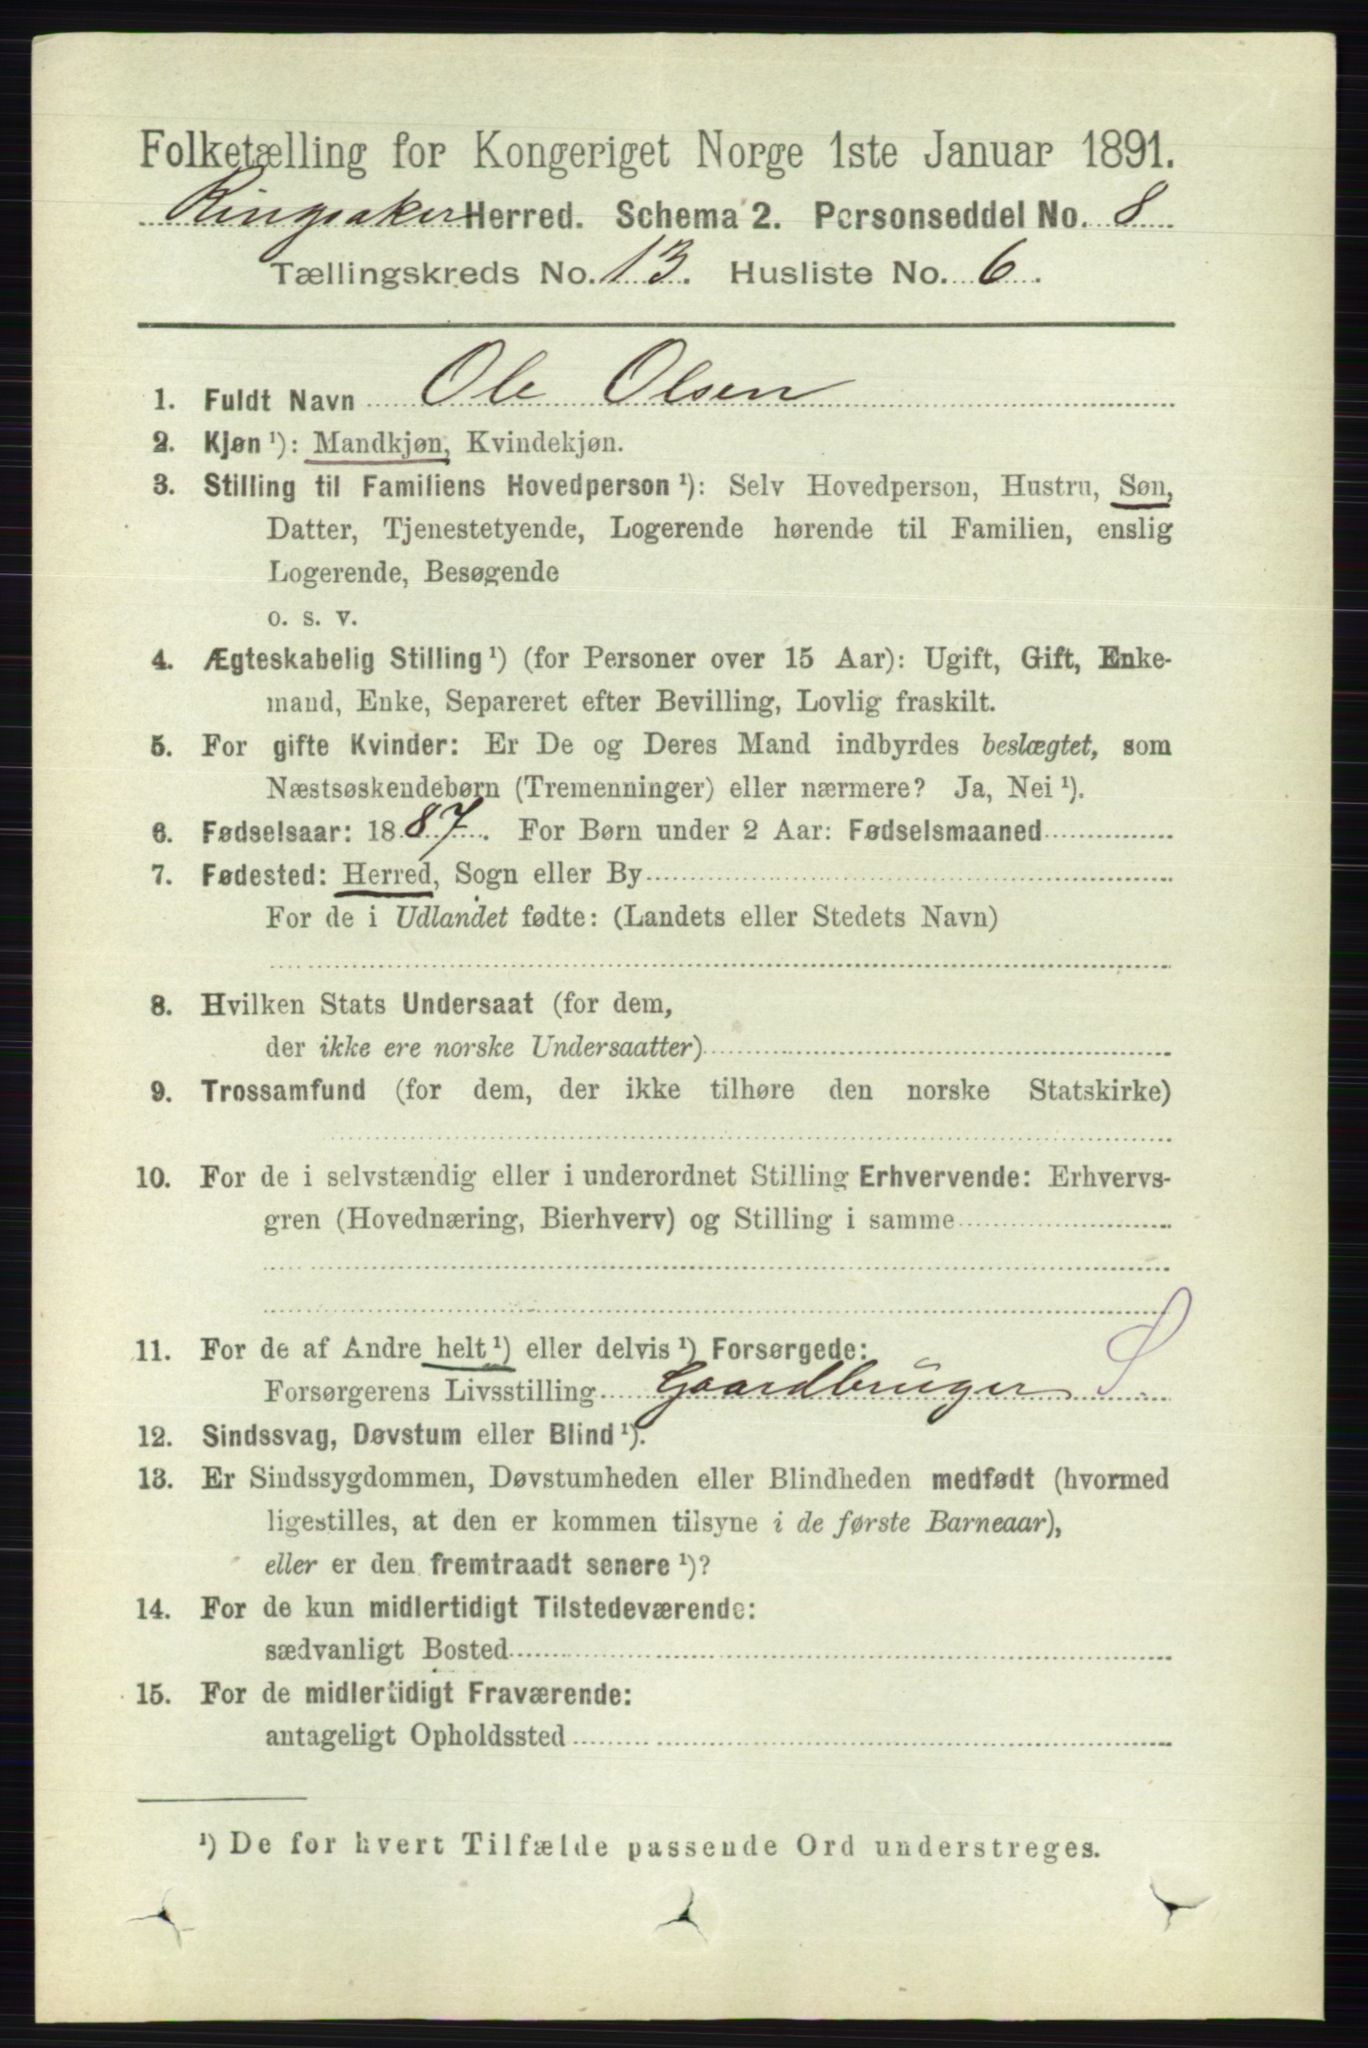 Folketælling for Kongeriget Norge 1ste Januar 1891.
Ringsaker Herred. Schema 2. Personseddel No. 8
Tællingskreds No. 13. Husliste No. 6.
1. Fuldt Navn Ole Olsen
2. Kjøn ¹): Mandkjøn, Kvindekjøn.
3. Stilling til Familiens Hovedperson ¹): Selv Hovedperson, Hustru, Søn,
Datter, Tjenestetyende, Logerende hørende til Familien, enslig
Logerende, Besøgende
o. s. v.
4. Ægteskabelig Stilling ¹) (for Personer over 15 Aar): Ugift, Gift, Enke-
mand, Enke, Separeret efter Bevilling, Lovlig fraskilt.
5. For gifte Kvinder: Er De og Deres Mand indbyrdes beslægtet, som
Næstsøskendebørn (Tremenninger) eller nærmere? Ja, Nei ¹).
6. Fødselsaar: 1887. For Børn under 2 Aar: Fødselsmaaned
7. Fødested: Herred, Sogn eller By
For de i Udlandet fødte: (Landets eller Stedets Navn)
8. Hvilken Stats Undersaat (for dem,
der ikke ere norske Undersaatter)
9. Trossamfund (for dem, der ikke tilhøre den norske Statskirke)
10. For de i selvstændig eller i underordnet Stilling Erhvervende: Erhvervs-
gren (Hovednæring, Bierhverv) og Stilling i samme
11. For de af Andre helt ¹) eller delvis ¹) Forsørgede:
Forsørgerens Livsstilling Gaardbruger S.
12. Sindssvag, Døvstum eller Blind ¹).
13. Er Sindssygdommen, Døvstumheden eller Blindheden medfødt (hvormed
ligestilles, at den er kommen tilsyne i de første Barneaar),
eller er den fremtraadt senere ¹)?
14. For de kun midlertidigt Tilstedeværende:
sædvanligt Bosted
15. For de midlertidigt Fraværende:
antageligt Opholdssted
¹) De for hvert Tilfælde passende Ord understreges.